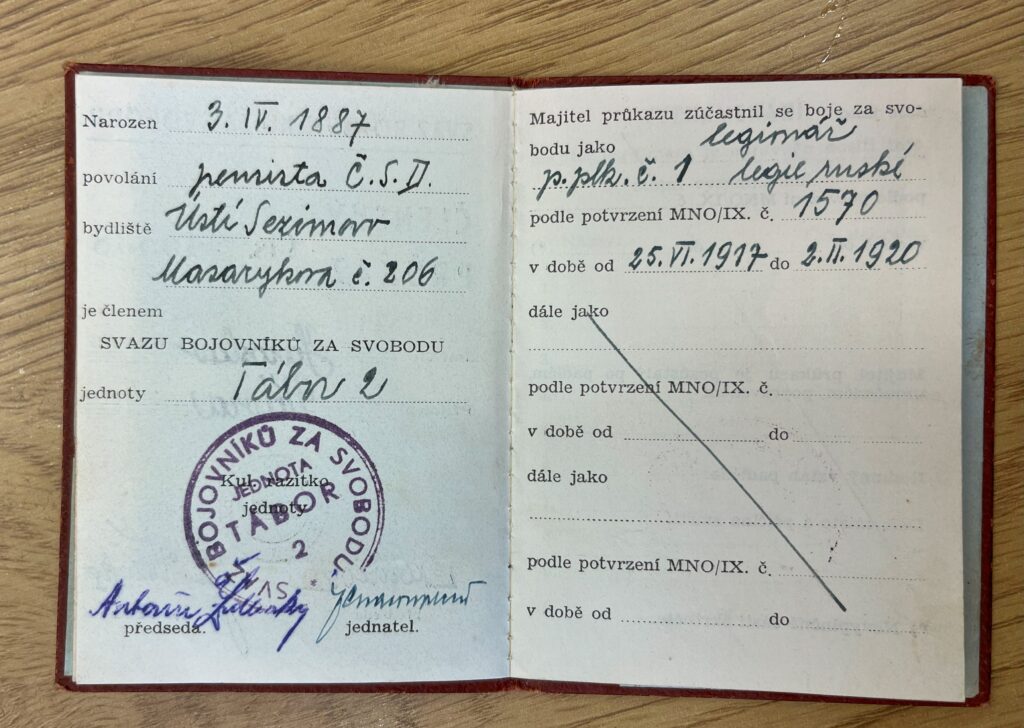 Narozen 3. IV. 1887
povolání pensista Č.S.D.
bydliště Ústí Sezimovo
Masarykova č. 206
je členem
SVAZU BOJOVNÍKŮ ZA SVOBODU
jednoty Tábor 2
SVAZ BOJOVNÍKŮ ZA SVOBODU
JEDNOTA
TÁBOR
2
Kul. razítko
jednoty
Antonín
předseda. jednatel.
Majitel průkazu zúčastnil se boje za svo-
bodu jako legionář
p. plk. č. 1 legie ruské
podle potvrzení MNO/IX. č. 1570
v době od 25. VI. 1917 do 2. II. 1920
dále jako
podle potvrzení MNO/IX. č.
v době od do
dále jako
podle potvrzení MNO/IX. č.
v době od do